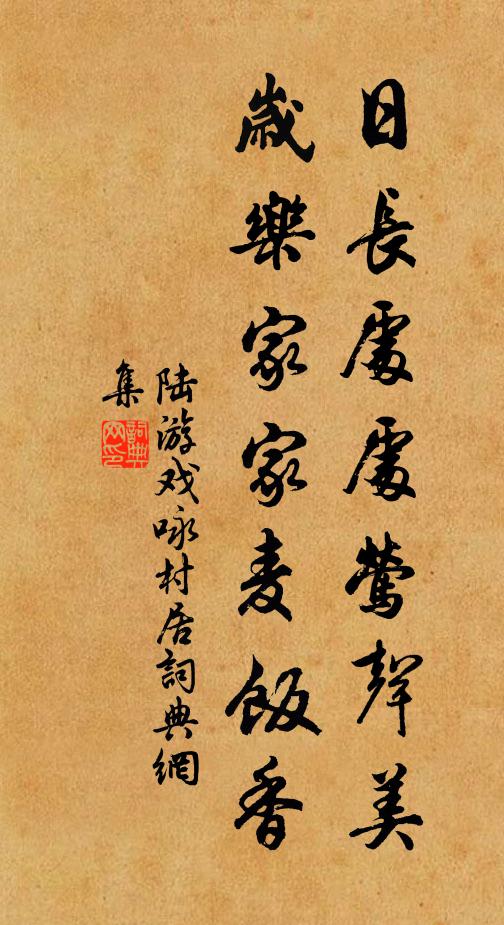 日長處處鶯聲美
歲樂家家麦飯香
陆游戏咏村居詞典網
集
詞典網印